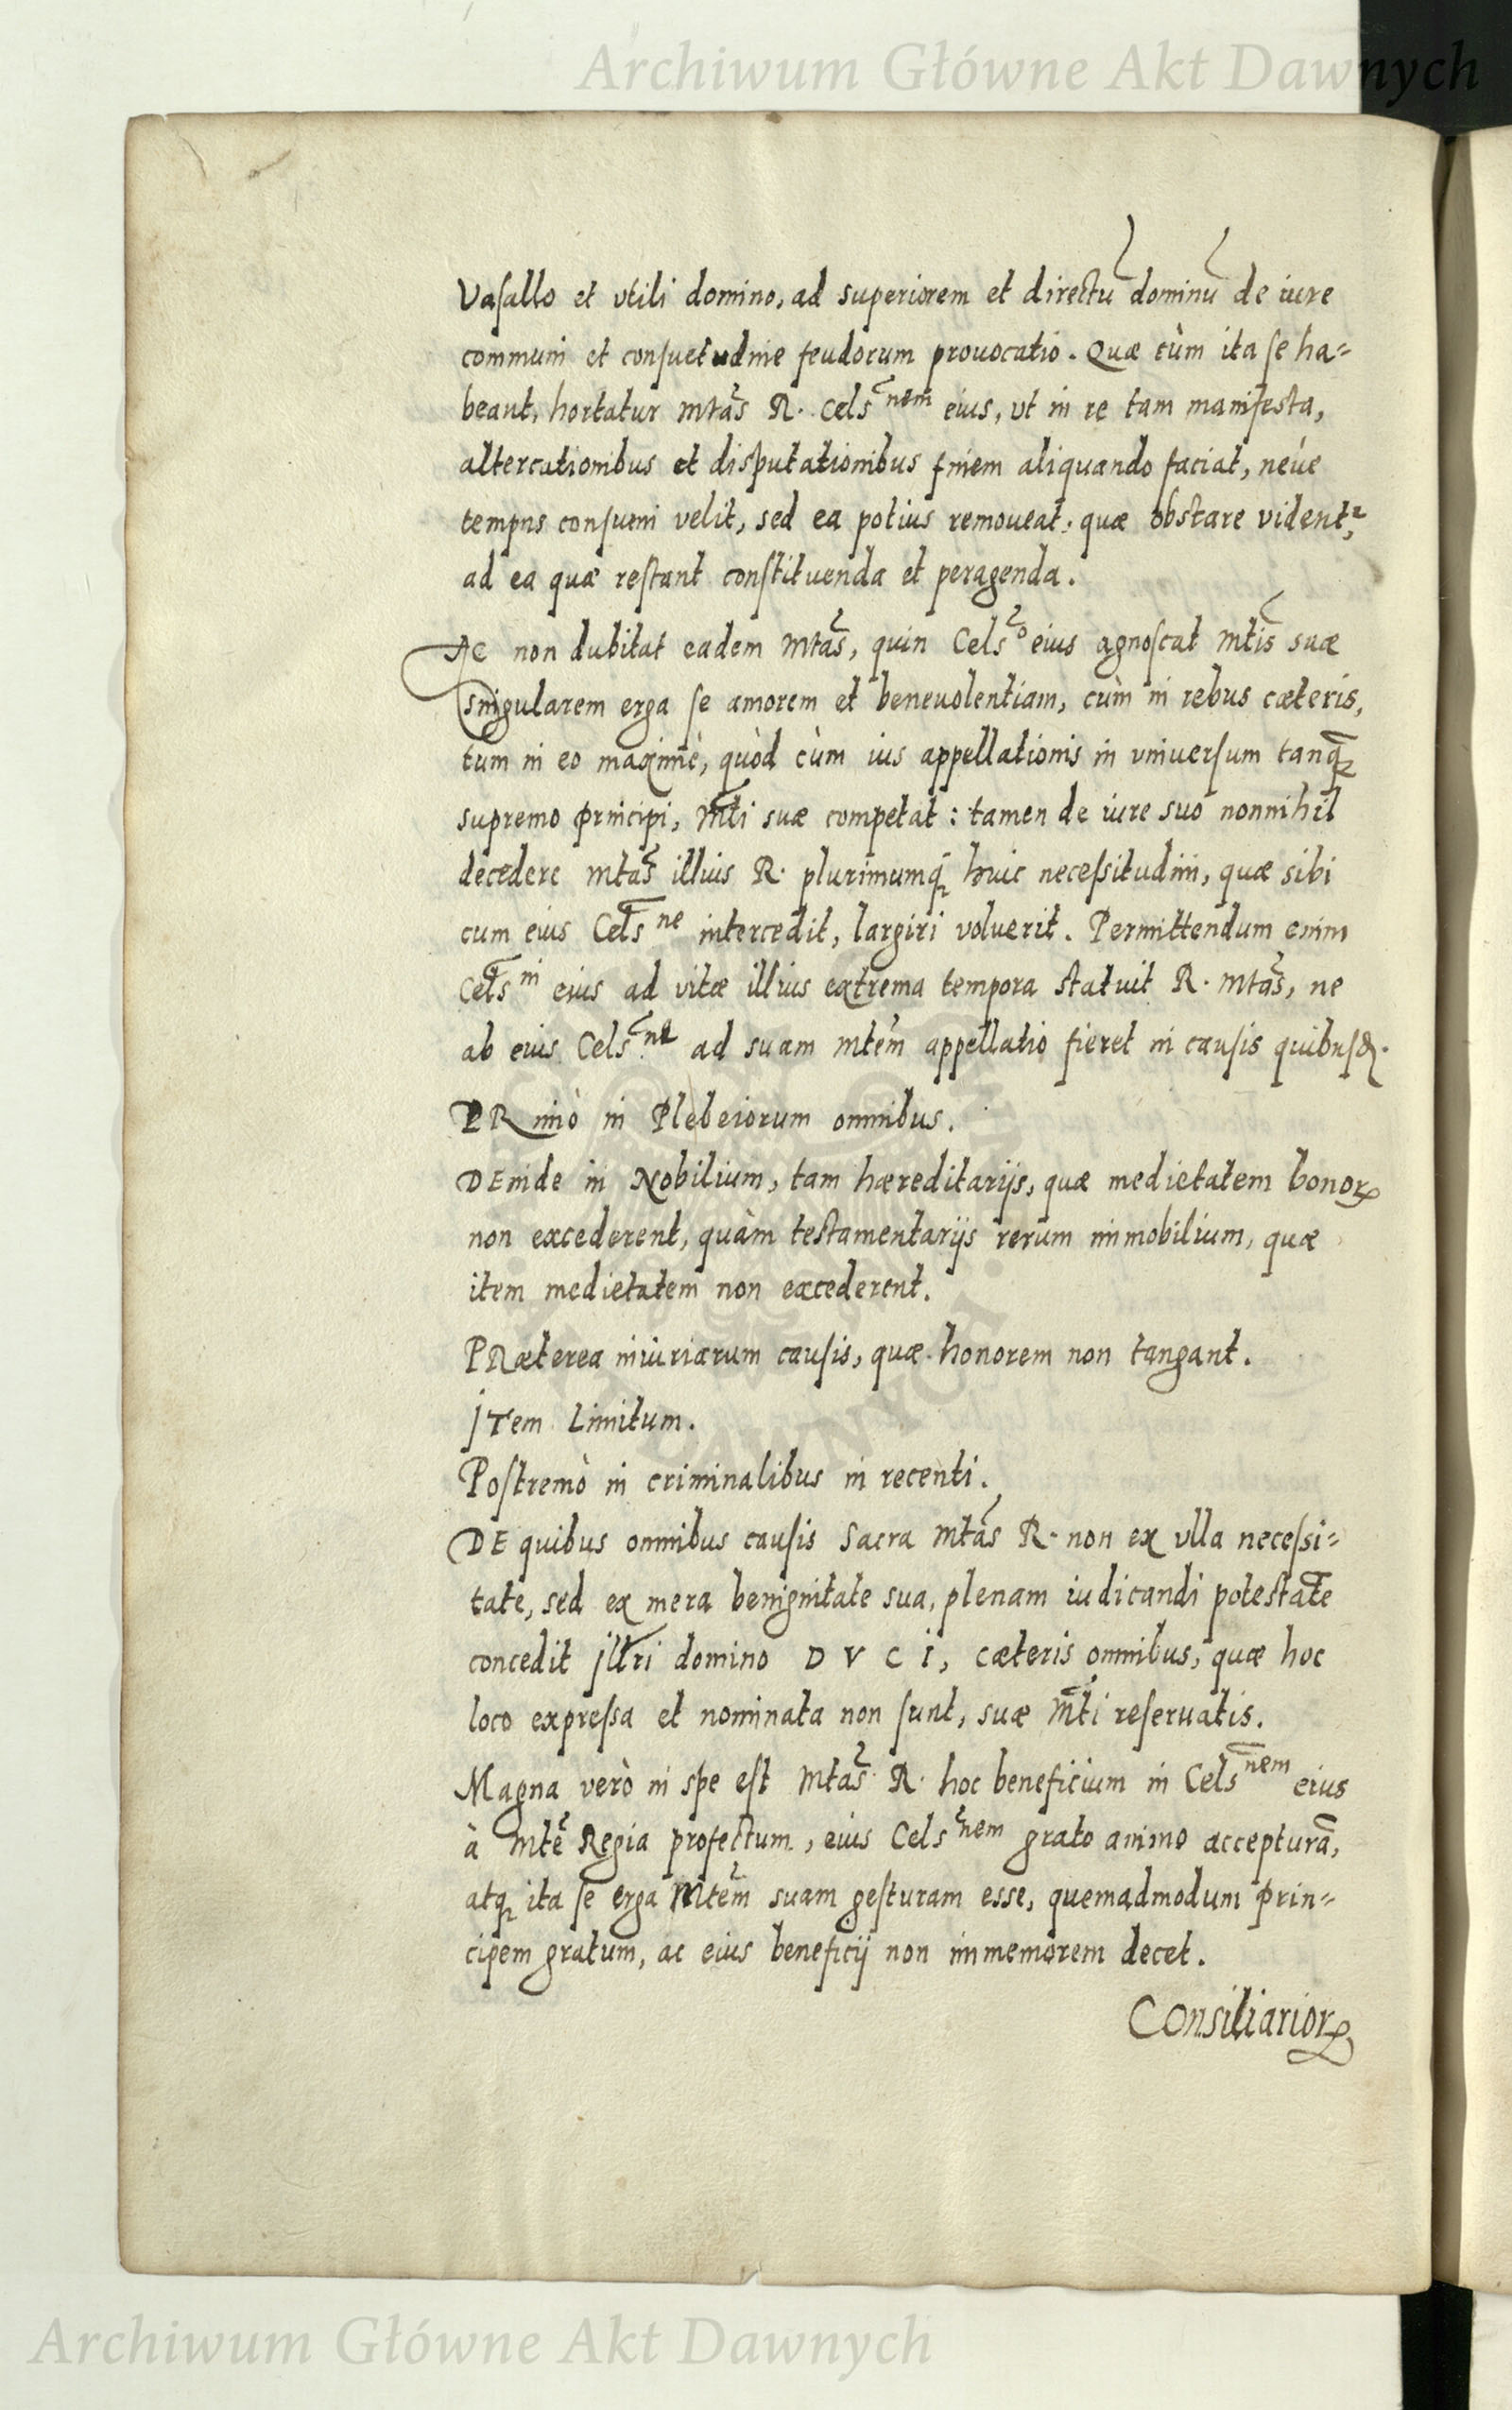 Archiwum Główne Akt Dawnych
Vasallo et vtili domino, ad superiorem et directũ dominũ de iure
communi et consuetudine feudorum prouocatio. Quæ cùm ita se ha=
beant, hortatur Mtãs R. Cels~nem eius, vt in re tam manifesta,
altercationibus et disputationibus finem aliquando faciat, neúe
tempus consumi velit, sed ea potius remoueat, quæ obstare vident~,
ad ea quæ restant constituenda et peragenda.
AC non dubitat eadem Mtãs, quin Cels~o eius agnoscat Mtĩs suæ
singularem erga se amorem et beneuolentiam, cùm in rebus cæteris,
tum in eo maximè, quòd cùm ius appellationis in vniuersum tanq̃
supremo principi, Mt̃i suæ competat: tamen de iure suo nonnihil
decedere Mtãs illius R. plurimumq; huic necessitudini, quæ sibi
cum eius Cels~ne intercedit, largiri voluerit. Permittendum enim
Cels~ni eius ad vitæ illius extrema tempora statuit R. Mtãs, ne
ab eius Cels~ne ad suam Mtẽm appellatio fieret in causis quibusd.
PRimò in Plebeiorum omnibus.
DEinde in Nobilium, tam hæreditarijs, quæ medietatem bonorꝝ
non excederent, quàm testamentarijs rerum immobilium, quæ
item medietatem non excederent.
PRæterea iniuriarum causis, quæ honorem non tangant.
ITem Limitum.
Postremò in criminalibus in recenti.
DE quibus omnibus causis Sacra Mtãs R. non ex vlla necessi=
tate, sed ex mera benignitate sua, plenam iudicandi potestatẽ
concedit Illr̃i domino D V C I, cæteris omnibus, quæ hoc
loco expressa et nominata non sunt, suæ Mt̃i reseruatis.
Magna verò in spe est Mtãs R. hoc beneficium in Cels~nem eius
à Mtẽ Regia profectum, eius Cels~nem grato animo accepturã,
atq; ita se erga Mtẽm suam gesturam esse, quemadmodum prin=
cipem gratum, ac eius beneficij non immemorem decet.
Consiliariorꝝ
Archiwum Główne Akt Dawnych